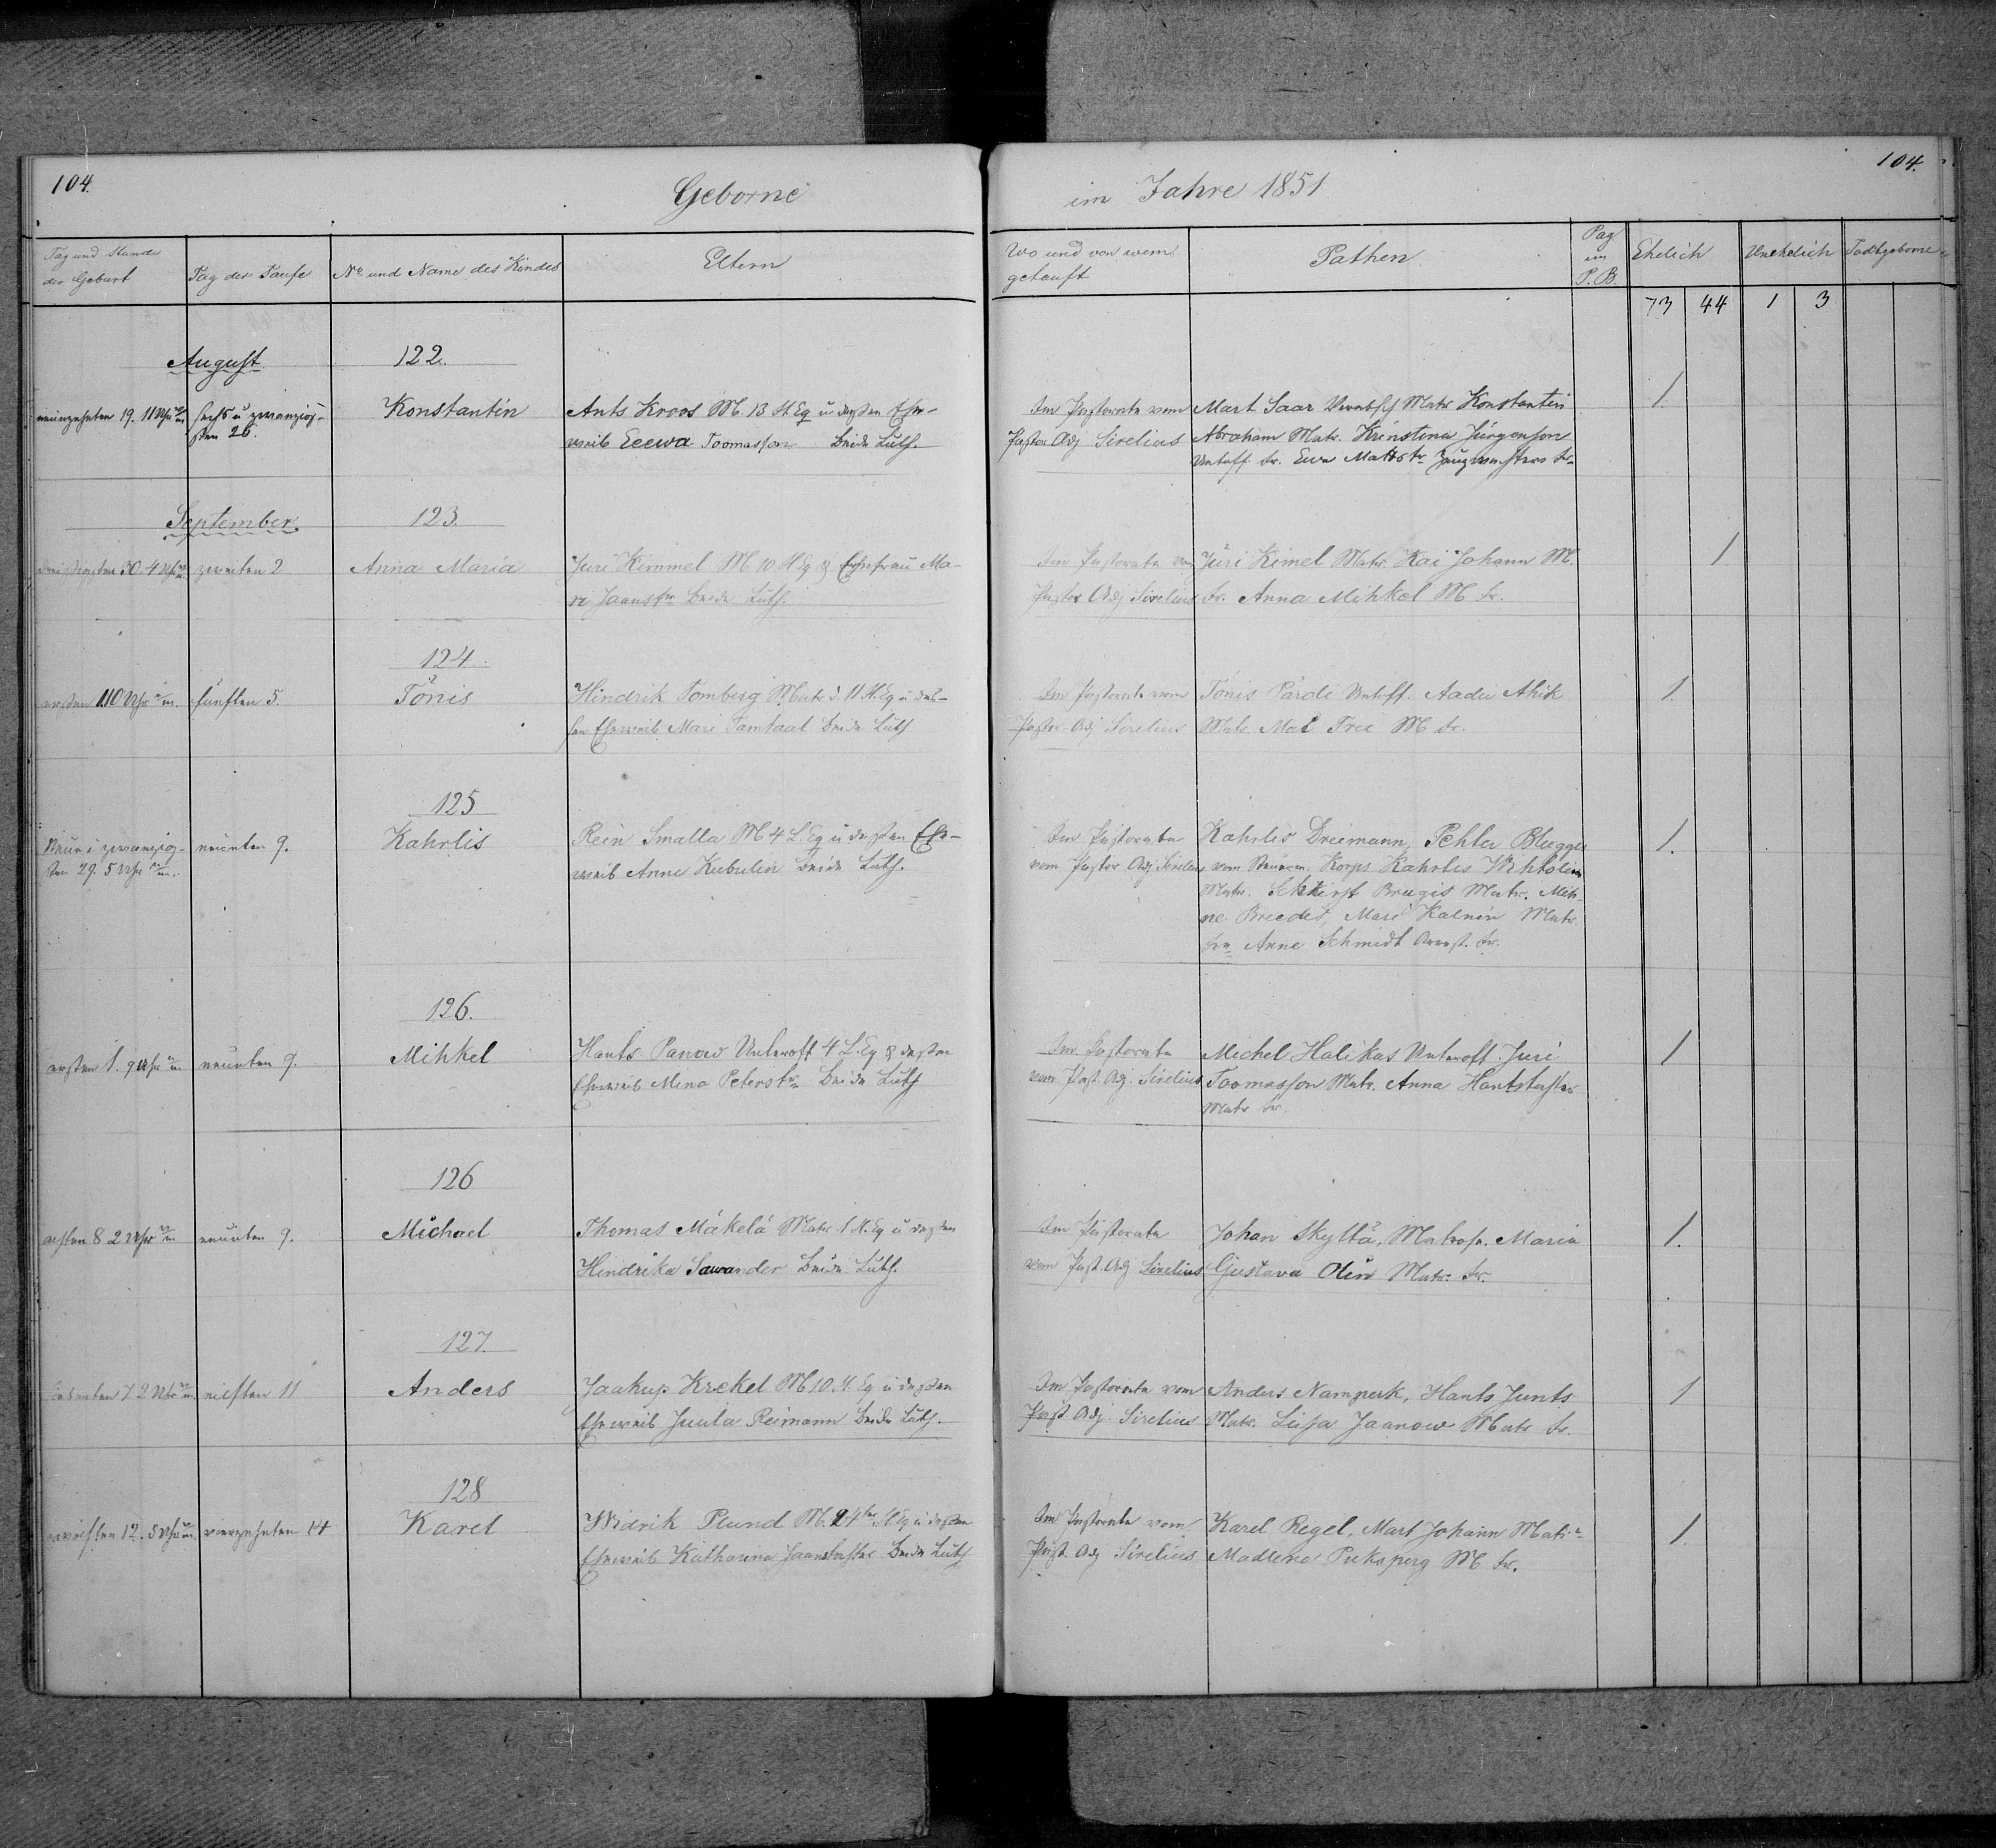 104.
Geborne
im Jahre 1851
104.
Tag und Stunde der Geburt
Tag der Taufe
No und Name des Kindes
Eltern
Wo und von wem getauft
Pathen
Pag im P.B.
Ehelich
Unehelich
Todtgeborne
73 44 1 3
August
122.
neunzehnten 19. 11 Uhr
sechs u zwanzig-
sten 26.
Konstantin
Ants Kroos M. 13 Fl. Eq u dessen Ehe-
weib Eeewa Toomasson beide Luth.
Im Pastorate vom
Pastor Adj Sirelius
Mart Saar Matr Konstantin
Abraham Matr. Krinstena Jürgenson
Untoff. fr. Ewa Matts tr
1.
September
123.
dreissigsten 30. 4 Uhr
zweiten 2
Anna Maria
Juri Kimmel M 10 Fl Eq & Ehefrau Ma-
ri Jaanstr beide Luth.
Im Pastorate von
Pastor Adj Sirelius
Jüri Kimel Matr. Kai Johann M.
fr. Anna Mihkel M fr.
1
124.
ersten 1 10 Uhr m.
fünften 5.
Tönis
Hindrik Tomberg Matr d. 11 Fl. Eq u des-
sen Eheweib Mari Tamtaal beide Luth
Im Pastorate vom
Pastor Adj Sirelius
Tönis Pärdi Untoff. Aadu Ahik
Matr. Mai Tree M fr.
1.
125
Neun u zwanzig-
sten 29. 5 Uhr m.
neunten 9.
Kahrlis
Rein Smalla M 4 L. Eq u dessen Ehe-
weib Anne Kubulin beide Luth.
Im Pastorate
vom Pastor Adj. Sirelius
Kahrlis Dreimann, Pehter Bluggis
vom Korps Kahrlis Wihtolin
Matr. Brugis Matr. Mih-
ne Breedis, Mari Kalnin Matr
frn Anne Schmidt fr.
1.
126.
ersten 1. 9 Uhr m
neunten 9.
Mihkel
Hants Panow Unteroff 4 L. Eq & dessen
Eheweib Mina Peterstr beide Luth
Im Pastorate
vom Past. Adj. Sirelius
Michel Halikas Unteroff. Juri
Toomasson Matr. Anna Hantstochter
Matr fr.
1
126
achten 8 2 Uhr m
neunten 9.
Michael
Thomas Mäkelä Matr 1 Fl. Eq u dessen
Hindrika Sawander beide Luth.
Im Pastorate
vom Past. Adj Sirelius
Johan Skyttä, Matrose. Maria
Gustava Olin Matr. fr.
1.
127.
siebenten 7. 2 Uhr m.
eilften 11
Anders
Jaakup Krekel M 10 Fl. Eq u dessen
Eheweib Juula Reimann beide Luth.
Im Pastorate vom
Past. Adj. Sirelius
Anders Namperk, Hants Junts
Matr. Lisa Jaanow Matr fr.
1
128
zwölften 12. 5 Uhr m.
vierzehnten 14
Karel
Widrik Plund M. 24ter Fl Eq u dessen
Eheweib Katharina Jaanstochter beide Luth
Im Pastorate vom
Past. Adj Sirelius
Karel Regel, Mart Johann Matr
Madlena Puksperg M fr.
1.